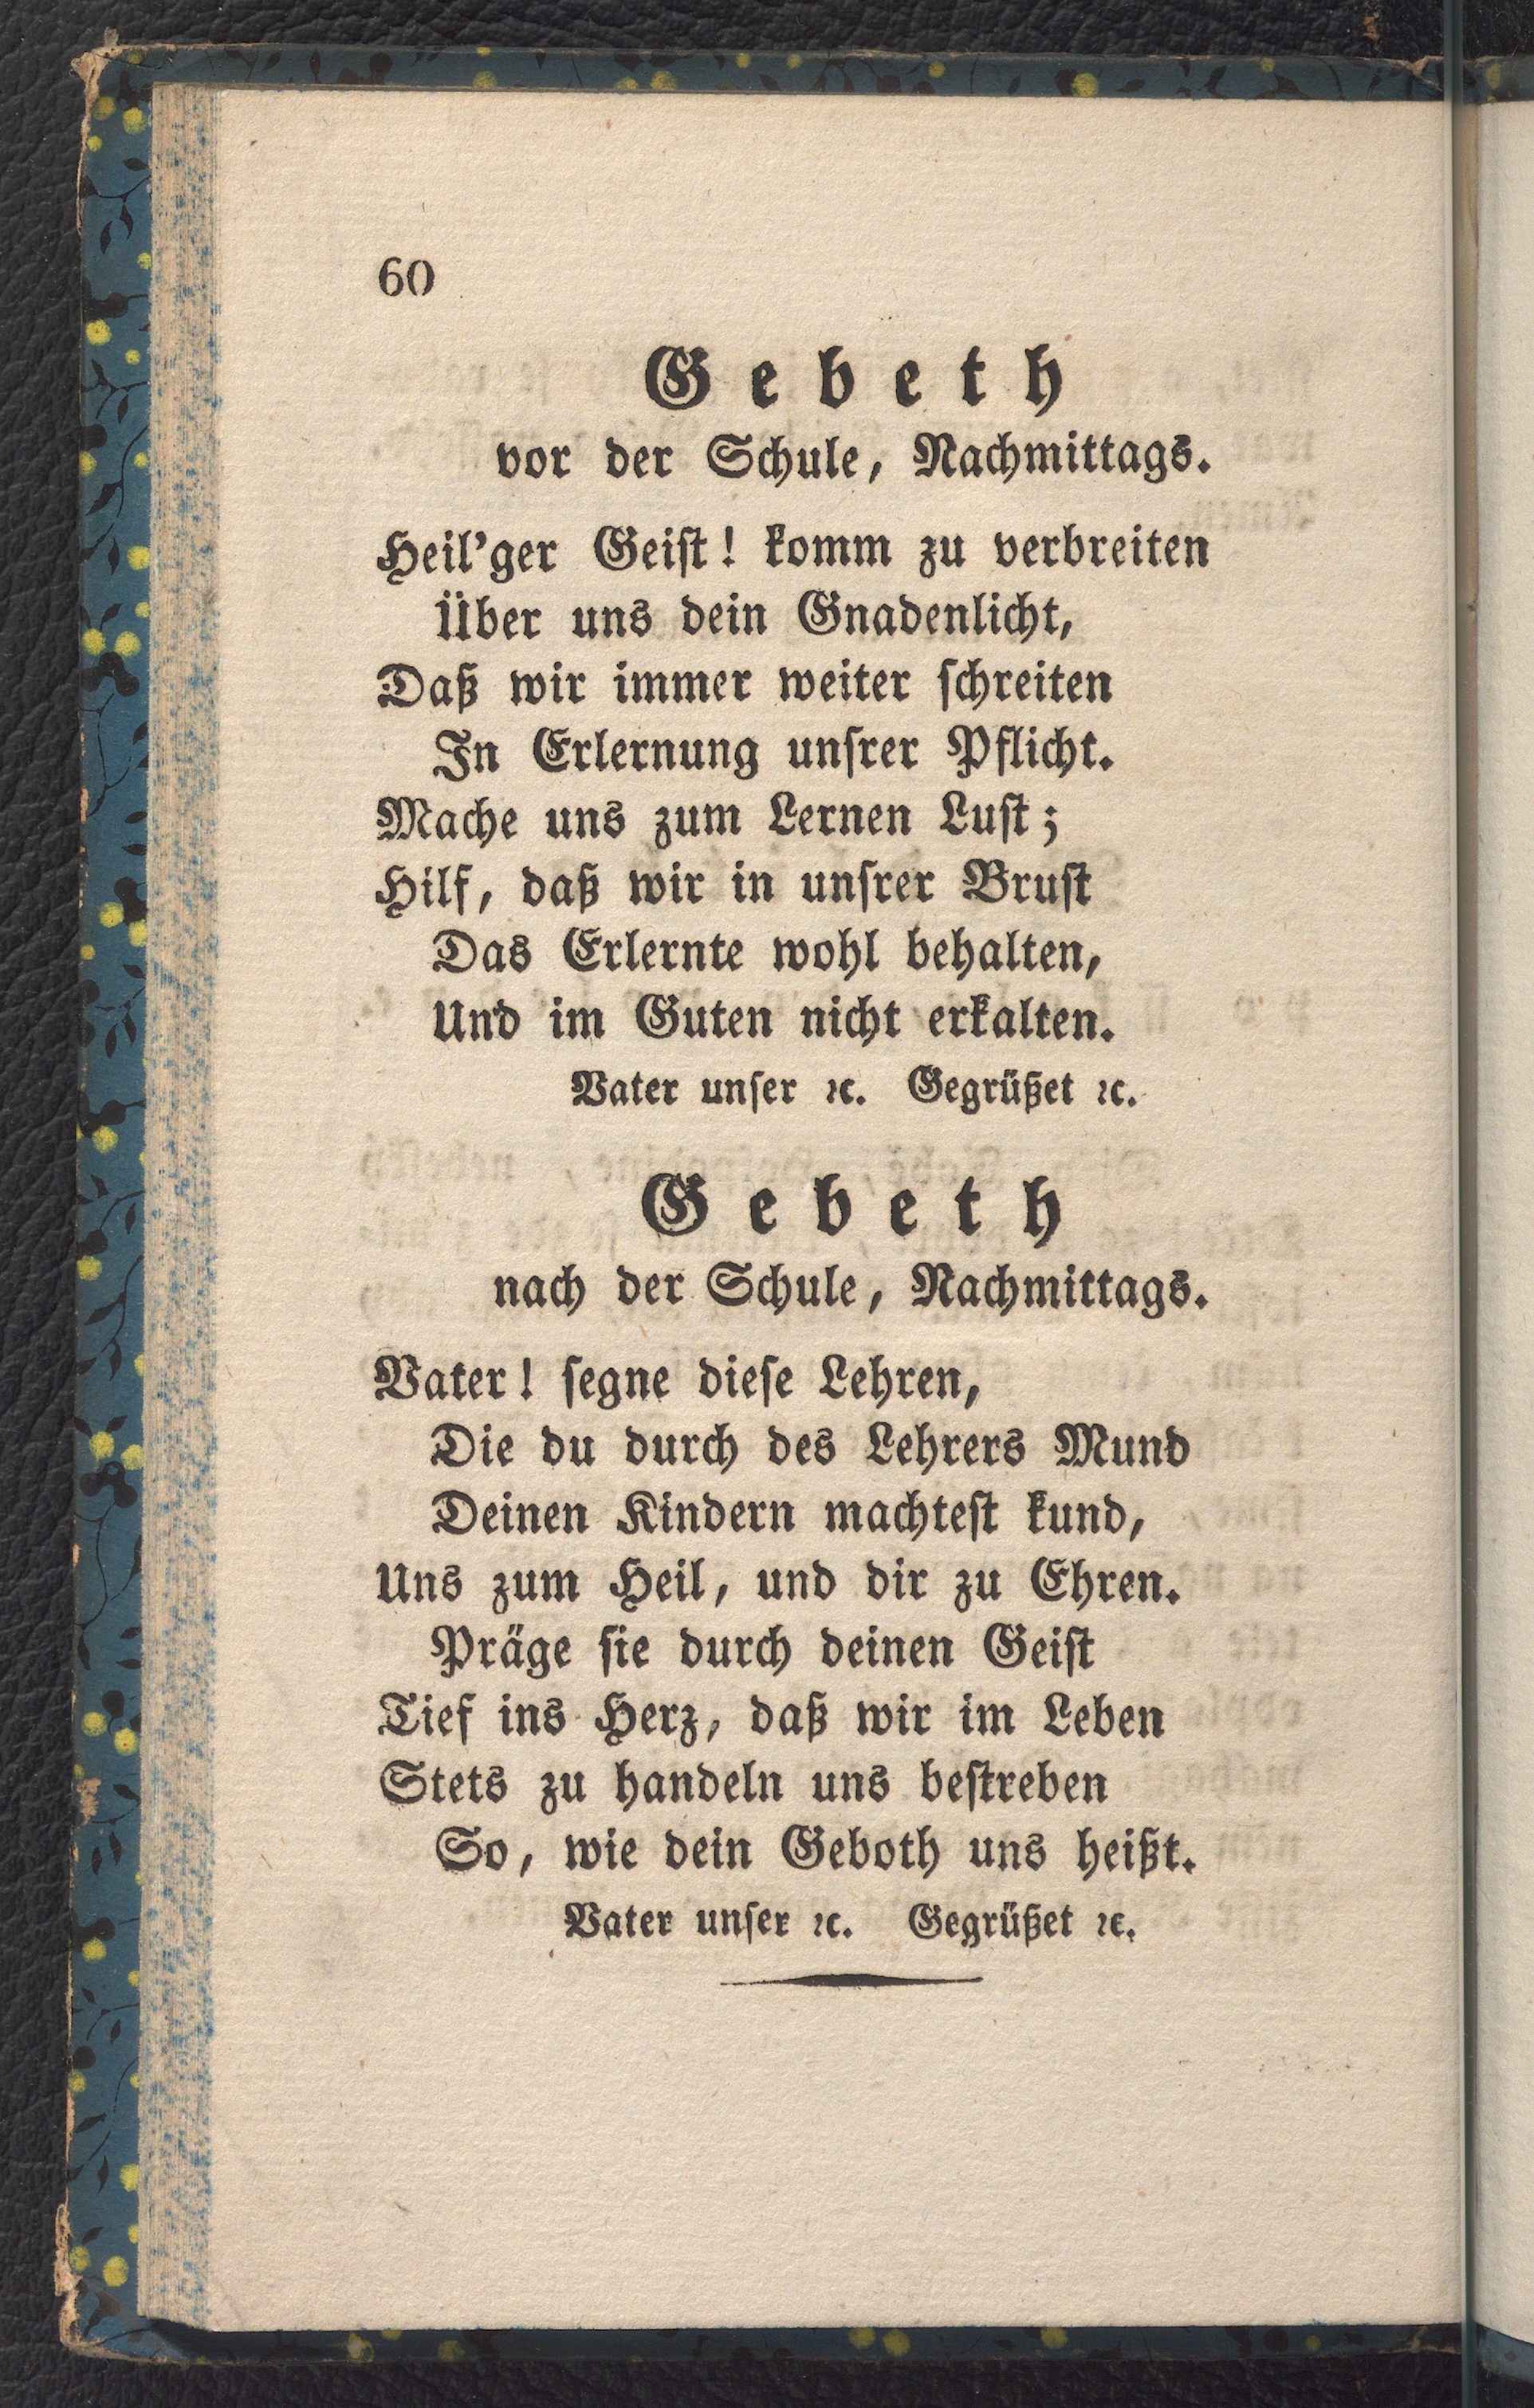 60
Gebeth
vor der Schule, Nachmittags.
Heil'ger Geist! komm zu verbreiten
Über uns dein Gnadenlicht,
Daß wir immer weiter schreiten
In Erlernung unsrer Pflicht.
Mache uns zum Lernen Lust;
Hilf, daß wir in unsrer Brust
Das Erlernte wohl behalten,
Und im Guten nicht erkalten.
Vater unser ꝛc. Gegrüßet ꝛc.
Gebeth
nach der Schule, Nachmittags.
Vater! segne diese Lehren,
Die du durch des Lehrers Mund
Deinen Kindern machtest kund,
Uns zum Heil, und dir zu Ehren.
Präge sie durch deinen Geist
Tief ins Herz, daß wir im Leben
Stets zu handeln uns bestreben
So, wie dein Geboth uns heißt.
Vater unser ꝛc. Gegrüßet ꝛc.